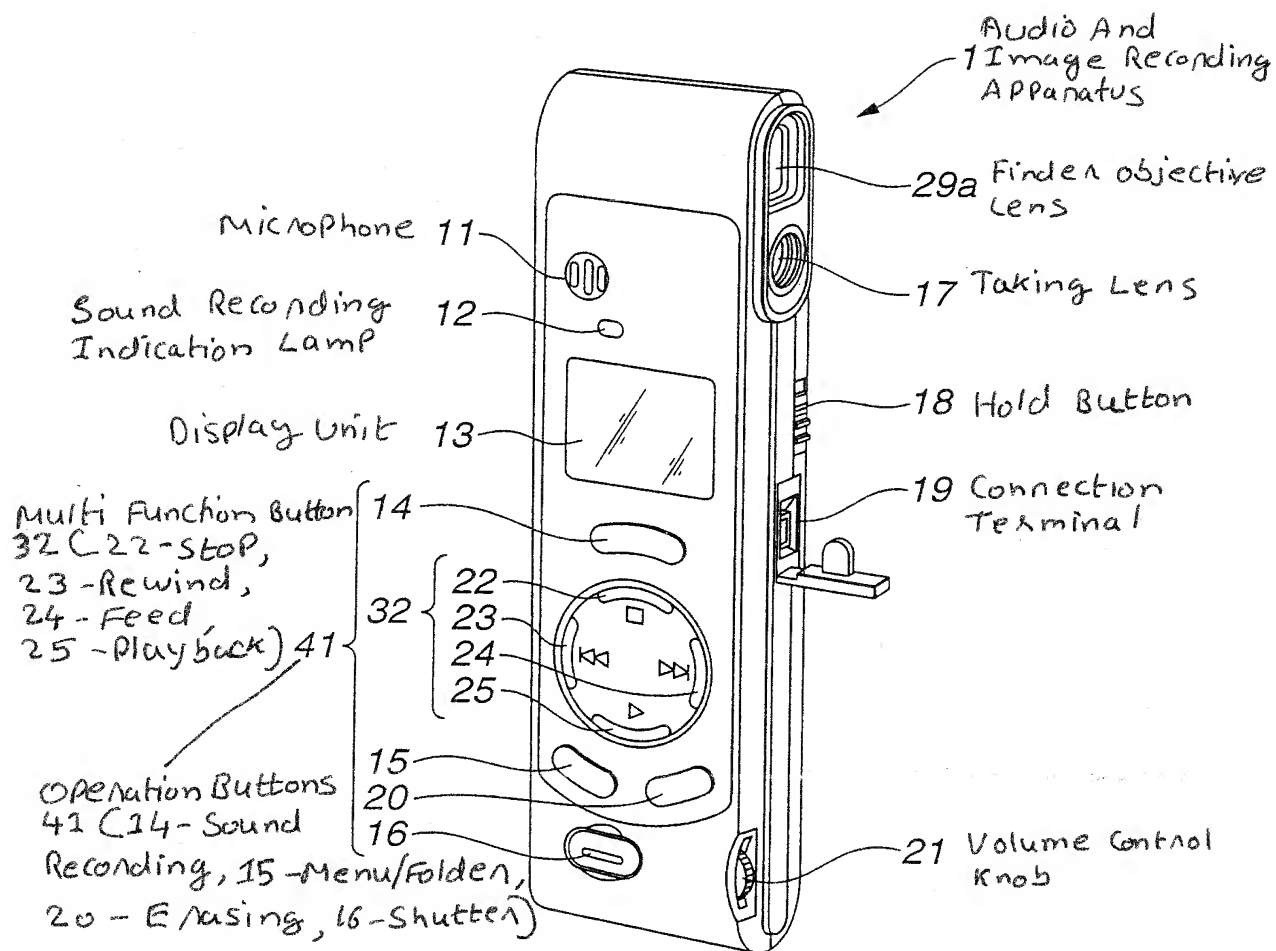 Audio And
1 Image Recording
Apparatus
29a Finder objective
Lens
Microphone 11
17 Taking Lens
Sound Recording
Indication Lamp 12
18 Hold Button
Display unit 13
19 Connection
Terminal
Multi Function Button 14
32 (22-Stop,
23-Rewind,
24-Feed,
25-Playback) 41
32
22
23
24
25
15
20
16
Operation Buttons
41 (14-Sound
Recording, 15-Menu/Folder,
20-Erasing, 16-Shutter)
21 Volume Control
Knob